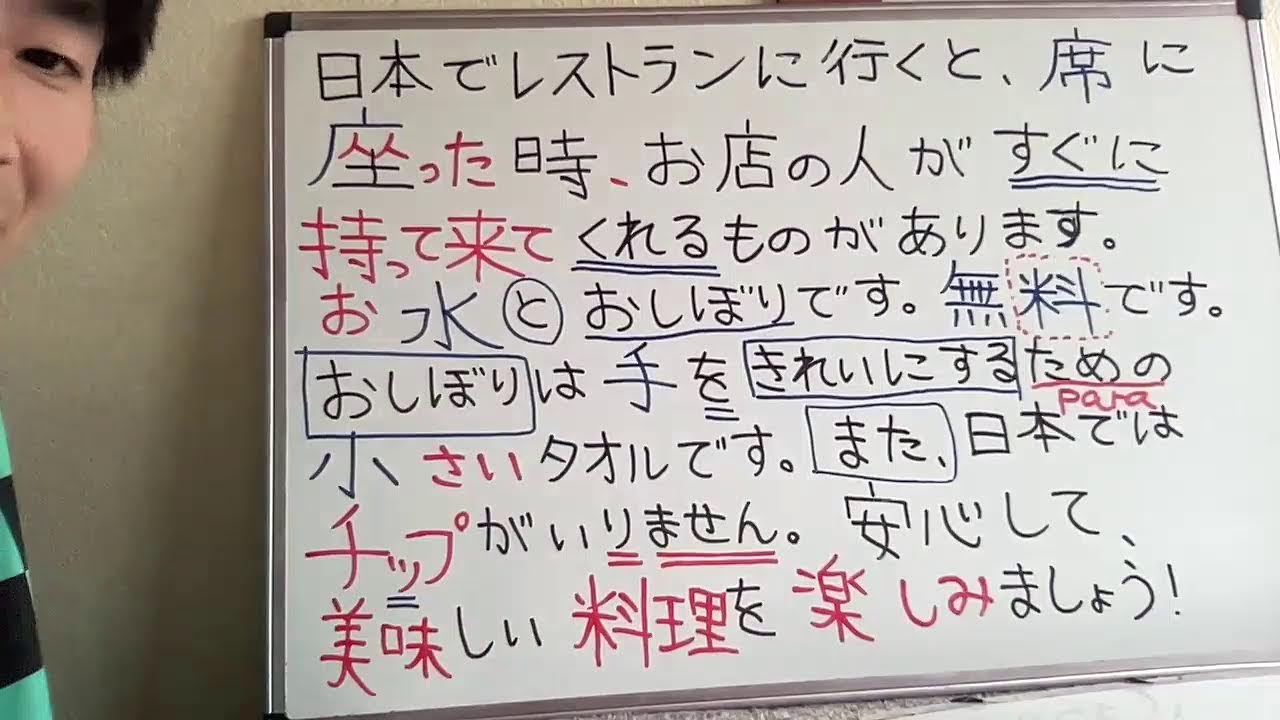 日本でレストランに行くと、席に
座った時、お店の人がすぐに
持って来てくれるものがあります。
お水とおしぼりです。無料です。
おしぼりは手をきれいにするための
para
小さいタオルです。また、日本では
チップがいりません。安心して、
美味しい料理を楽しみましょう!